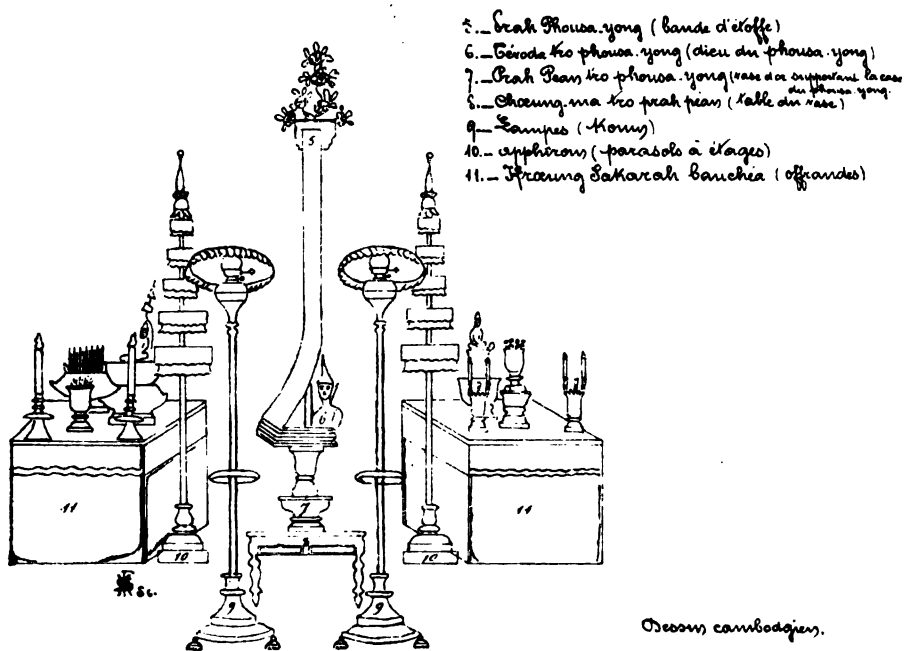 5._ Prah Phousa-yong (bande d'étoffe)
6._ Téveda tro phousa-yong (dieu du phousa-yong)
7._ Prah Pean tro phousa-yong (vase d'or supportant la case
du phousa-yong.
8._ Chœung-ma tro prah pean (table du vase)
9_ Lampes (Koms)
10._ apphiroms (parasols à étages)
11._ Krœung Sakarah bauchéa (offrandes)
5
6
7
8
9
9
10
10
11
11
Sc.
Dessin cambodgien.